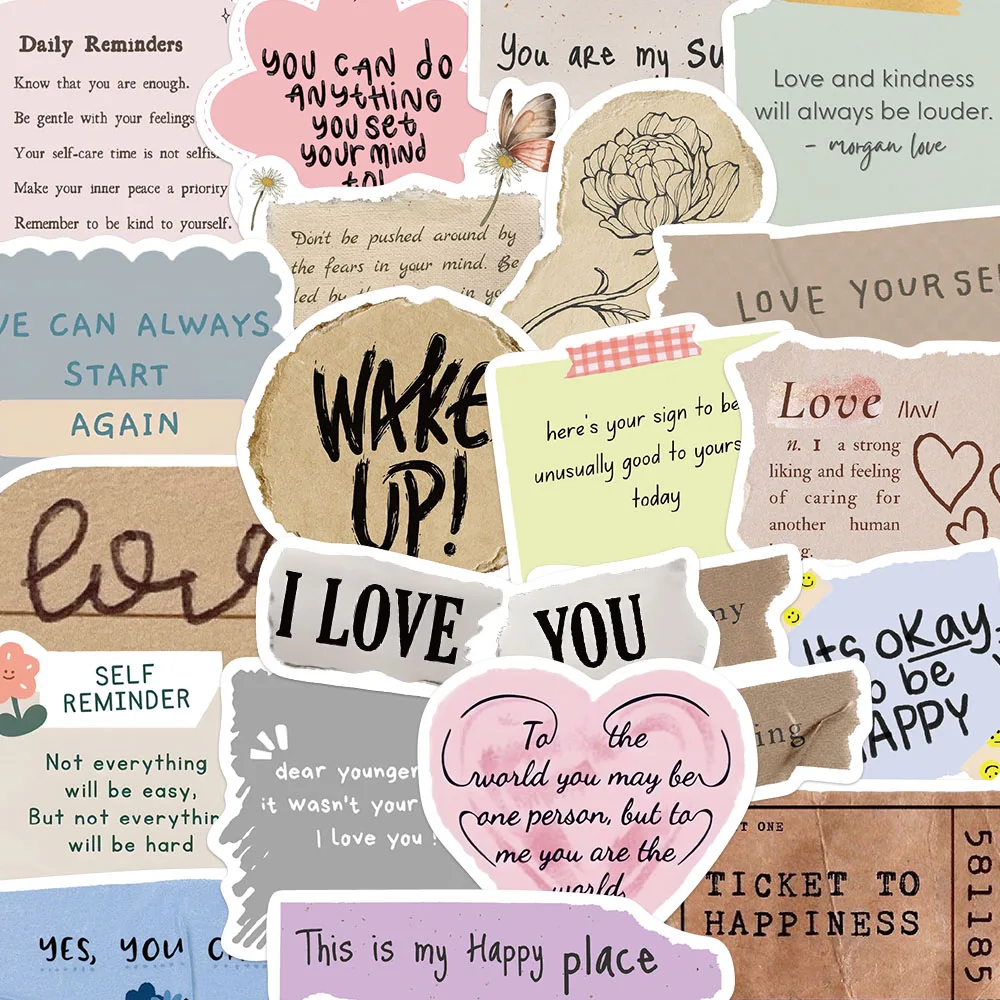 Daily Reminders
Know that you are enough.
Be gentle with your feelings
Your self-care time is not selfis
Make your inner peace a priority
Remember to be kind to yourself.
YOU CAN do
ANYTHING
YOU SET
YOUR MIND
to!
You are my Su
Love and kindness
will always be louder.
- morgan love
Don't be pushed around by
the fears in your mind. Be
led by the in yo
LOVE YOURSE
VE CAN ALWAYS
START
AGAIN
WAKE
UP!
here's your sign to be
unusually good to yours
today
Love /lʌv/
n. 1 a strong
liking and feeling
of caring for
another human
ng.
love
I LOVE
YOU
ny
ing
Its oKay
o be
HAPPY
SELF
REMINDER
Not everything
will be easy,
But not everythin
will be hard
dear younger
it wasn't your
I love you
To the
world you may be
one person, but to
me you are the
world
T ONE
TICKET TO
HAPPINESS
581185
YES, YOU C
This is my Happy place